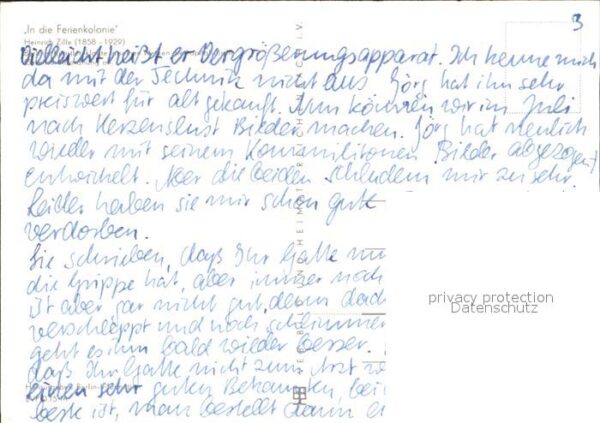 „In die Ferienkolonie"
Heinrich Zille (1858 - 1929)
3
Vielleicht heißt er Vergrößerungsapparat. Ich kenne mich
da mit der Technik nicht aus. Jörg hat ihn sehr
preiswert für alt gekauft. Nun können wir im Juli
nach Herzenslust Bilder machen. Jörg hat neulich
wieder mit seinem Kommilitonen Bilder abgezogen
entwickelt. Aber die beiden schludern mir zu sehr.
Leider haben sie mir schon gute
verdorben.
Sie schrieben, daß Ihr Gatte
die Grippe hat, aber immer noch
ist aber gar nicht gut, denn
verschleppt und noch schlimmer
geht es ihm bald wieder besser.
daß Ihr Gatte nicht zum Arzt
einen sehr guten Bekannten, bei
beste ist, man bestellt dann
privacy protection
Datenschutz